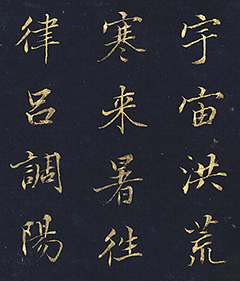 宇宙洪荒
寒来暑往
律呂調陽